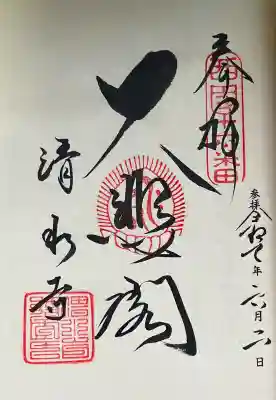 奉拝
大悲閣
清水寺
参拝 令和七年 六月 日